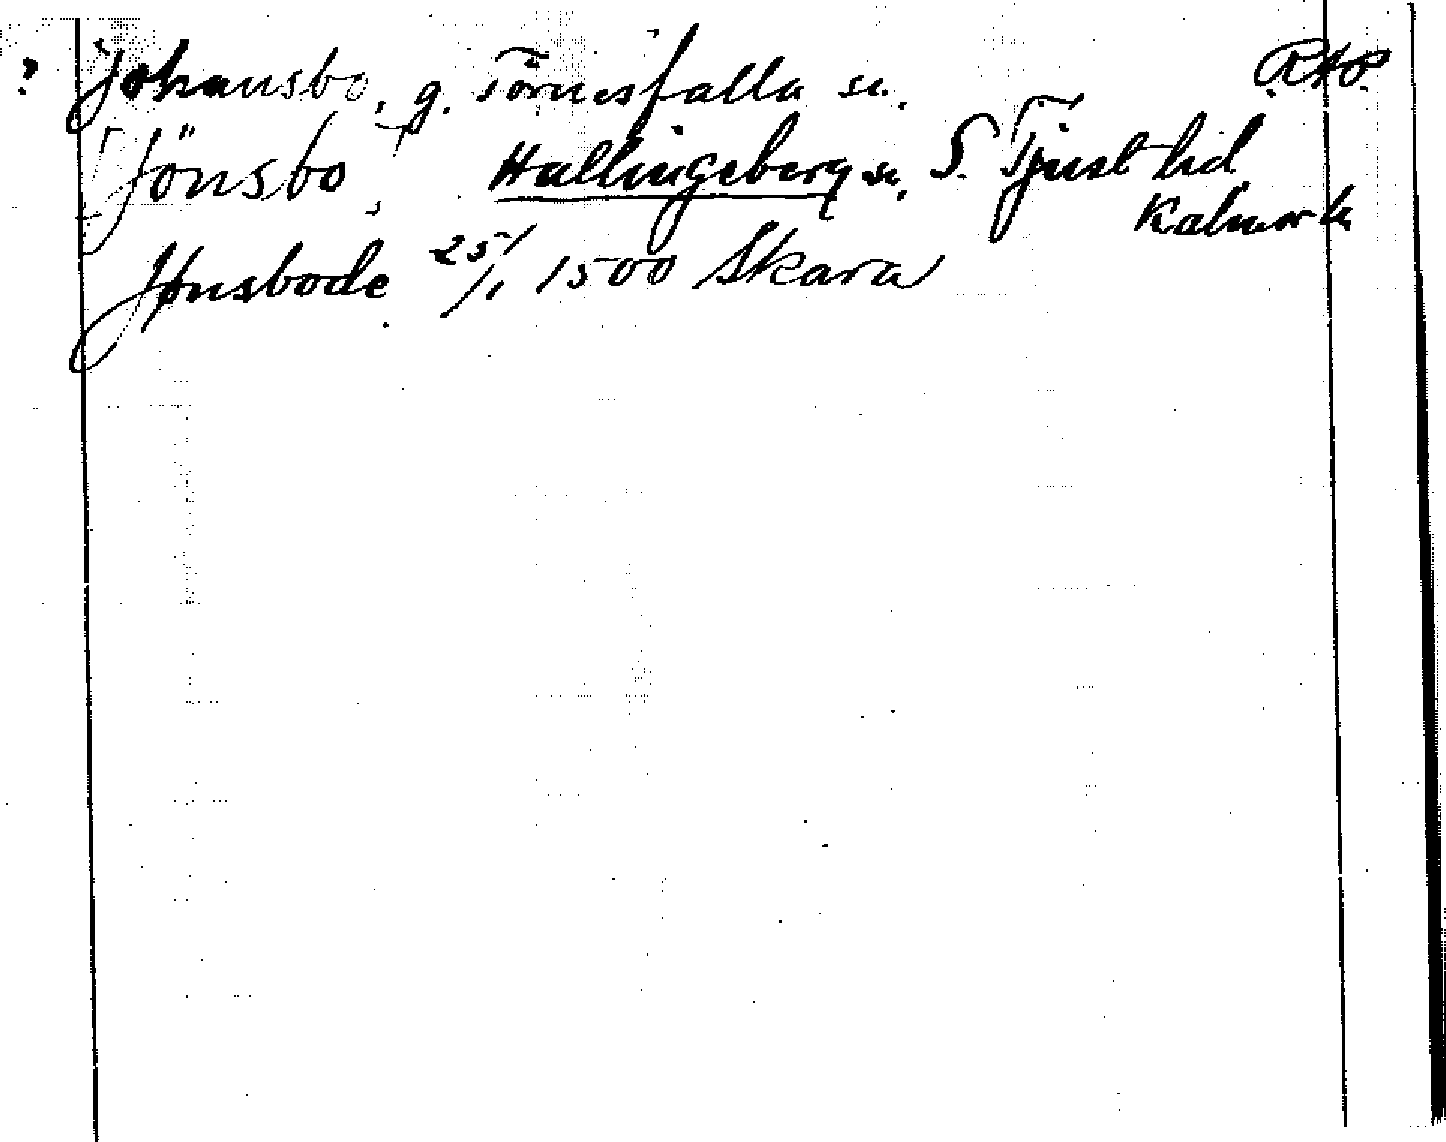 ? Johansbo, g. Törnesfalla sn. RAP.
[Jönsbo] Hallingeberg sn, S. Tjust hd
Kalmar l.
Jønsbode 25/1 1500 Skara